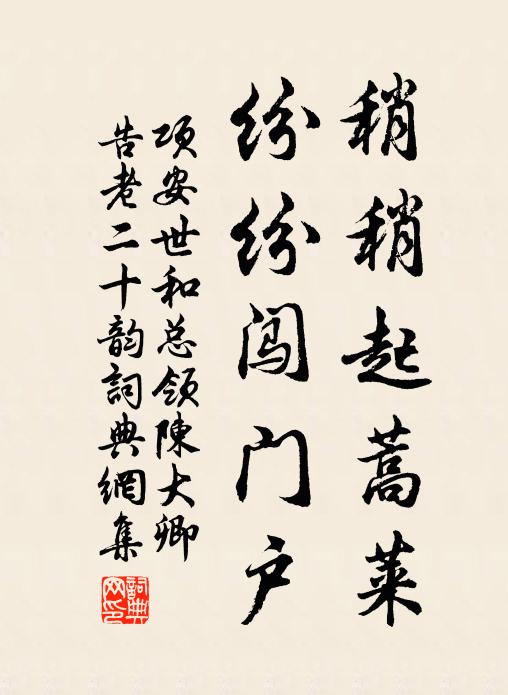 稍稍起蒿莱
纷纷闯门户
项安世和总领陳大卿
告老二十韵詞典網集